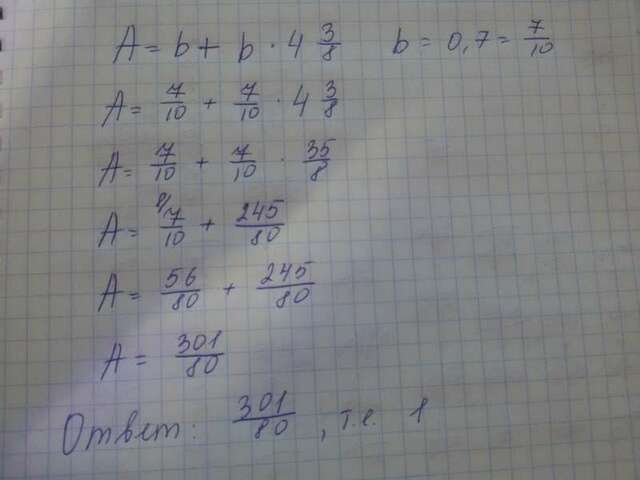 A = b + b · 4 3/8   b = 0,7 = 7/10
A = 7/10 + 7/10 · 4 3/8
A = 7/10 + 7/10 · 35/8
A = 8/ 7/10 + 245/80
A = 56/80 + 245/80
A = 301/80
Ответ: 301/80, т.е. 1